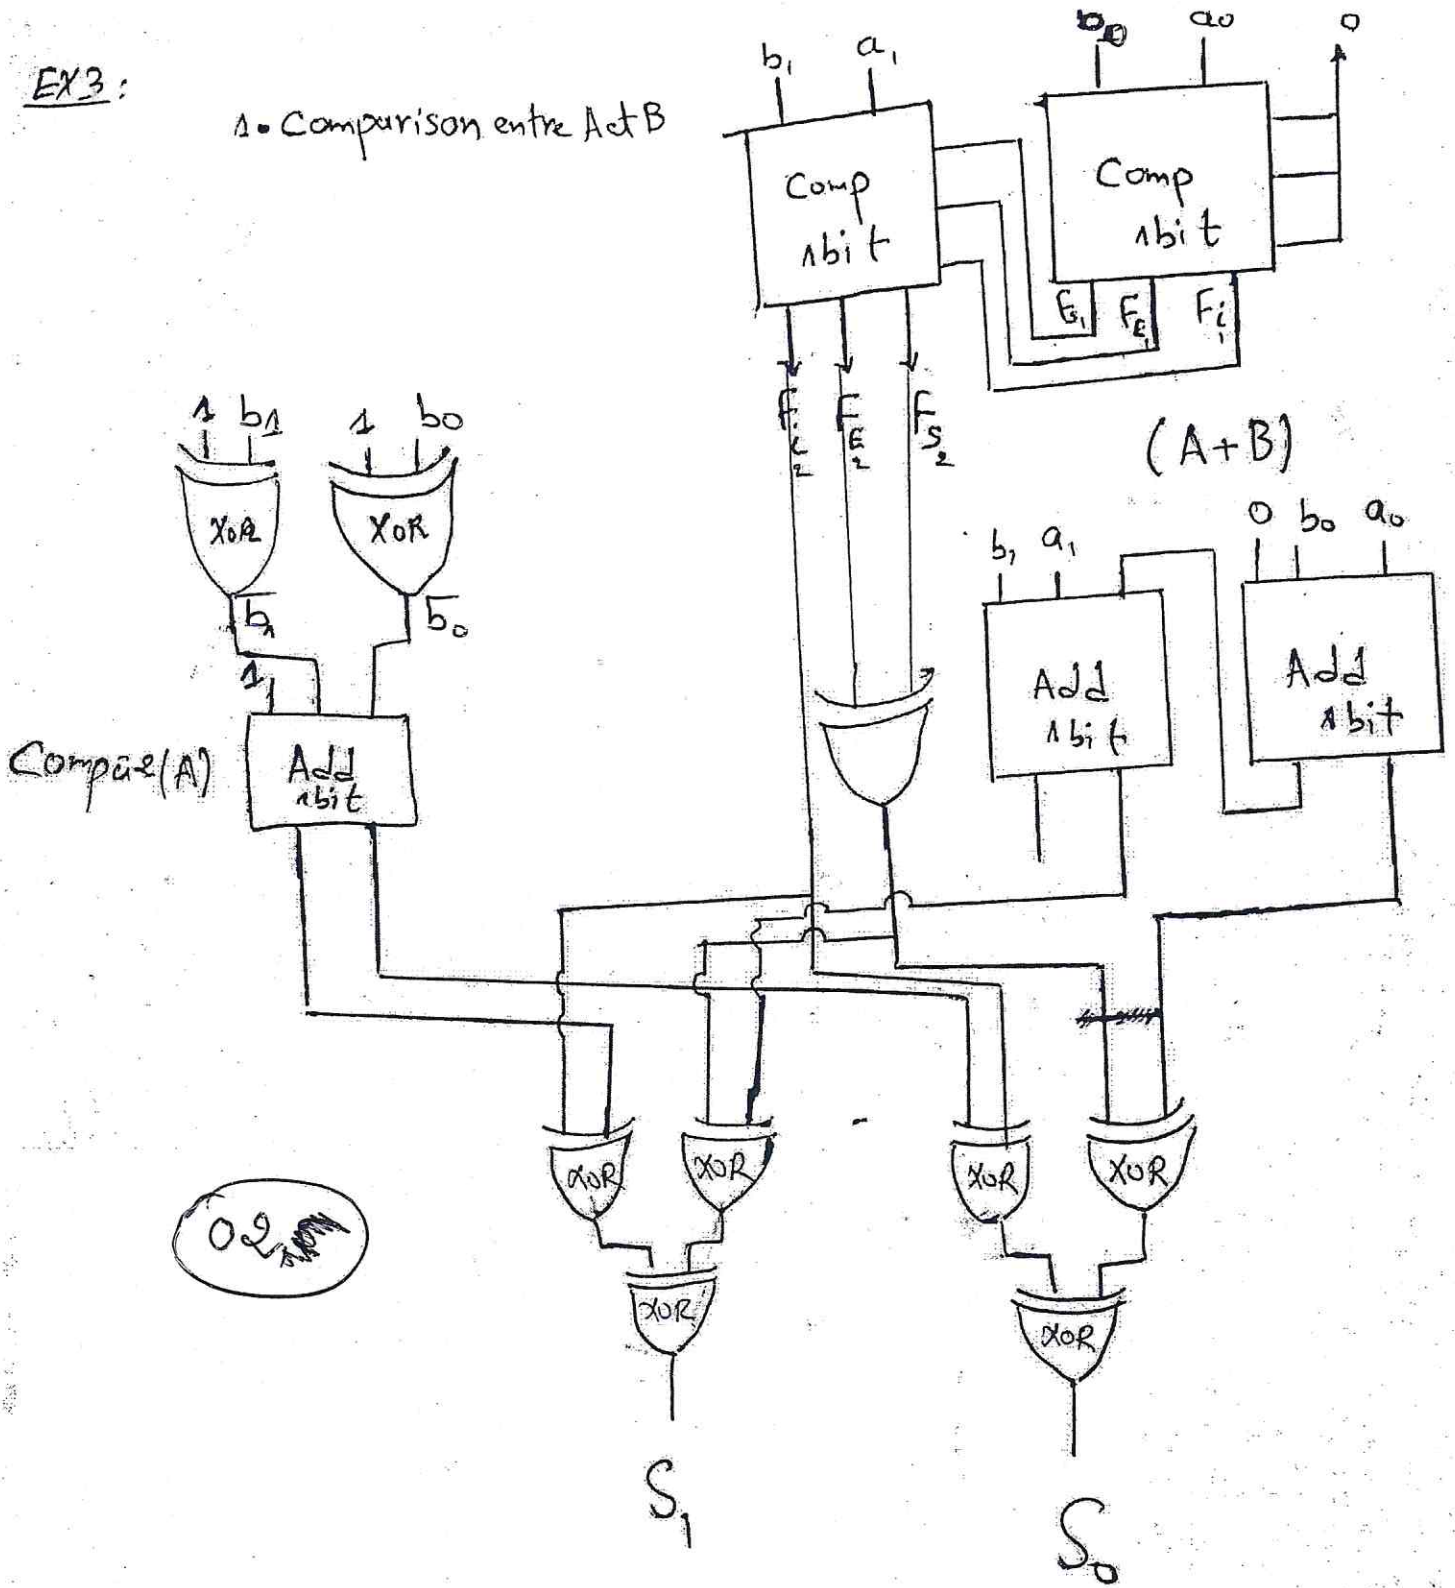 EX3:
1. Comparison entre A et B
b1 a1
b0 a0 0
Comp
1bit
Comp
1bit
Fs1 FE1 Fi1
Fi2 FE2 Fs2
(A+B)
1 b1 1 b0
XOR XOR
b̅1 b̅0
1
Add
1bit
b1 a1
0 b0 a0
Add
1bit
Add
1bit
XOR XOR XOR XOR
XOR XOR
02
S1
S0